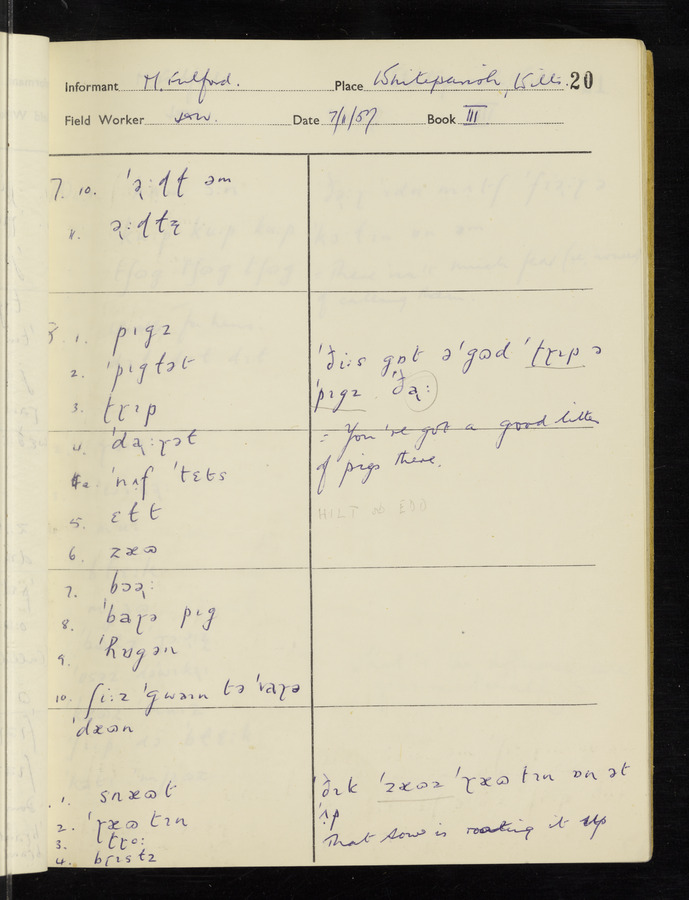 Informant M. Fulford. Place Whiteparish, Wilts. 20
Field Worker Date 7/11/57 Book III
7. 10. əm
11.
1. pɪgz
2. ˈpɪgtət
3. tɽɪp
4. ˈdaɻ:ɽət
ˈnʌf ˈtɛts
5. ɛɫt
6. zæɷ
7. bəɻ:
8. ˈbaɽə pɪg
9. ˈhʊgən
10. ʃi:z ˈgwəɪn tə ˈvaɽə
ˈdæɷn
1. snæɷt
2. ˈɽæɷtɪn
3.
4. bɽɪstz
ˈði:s gɒt ə ˈgɷd ˈtɽɪp ə
ˈpɪgz ˈðəɻ:
= You're got a good litter
of pigs there.
HILT ∞ EDD
ˈðɪk ˈzæɷz ˈɽæɷtɪn ɒn ət
ˈʌp
That sow is rooting it up